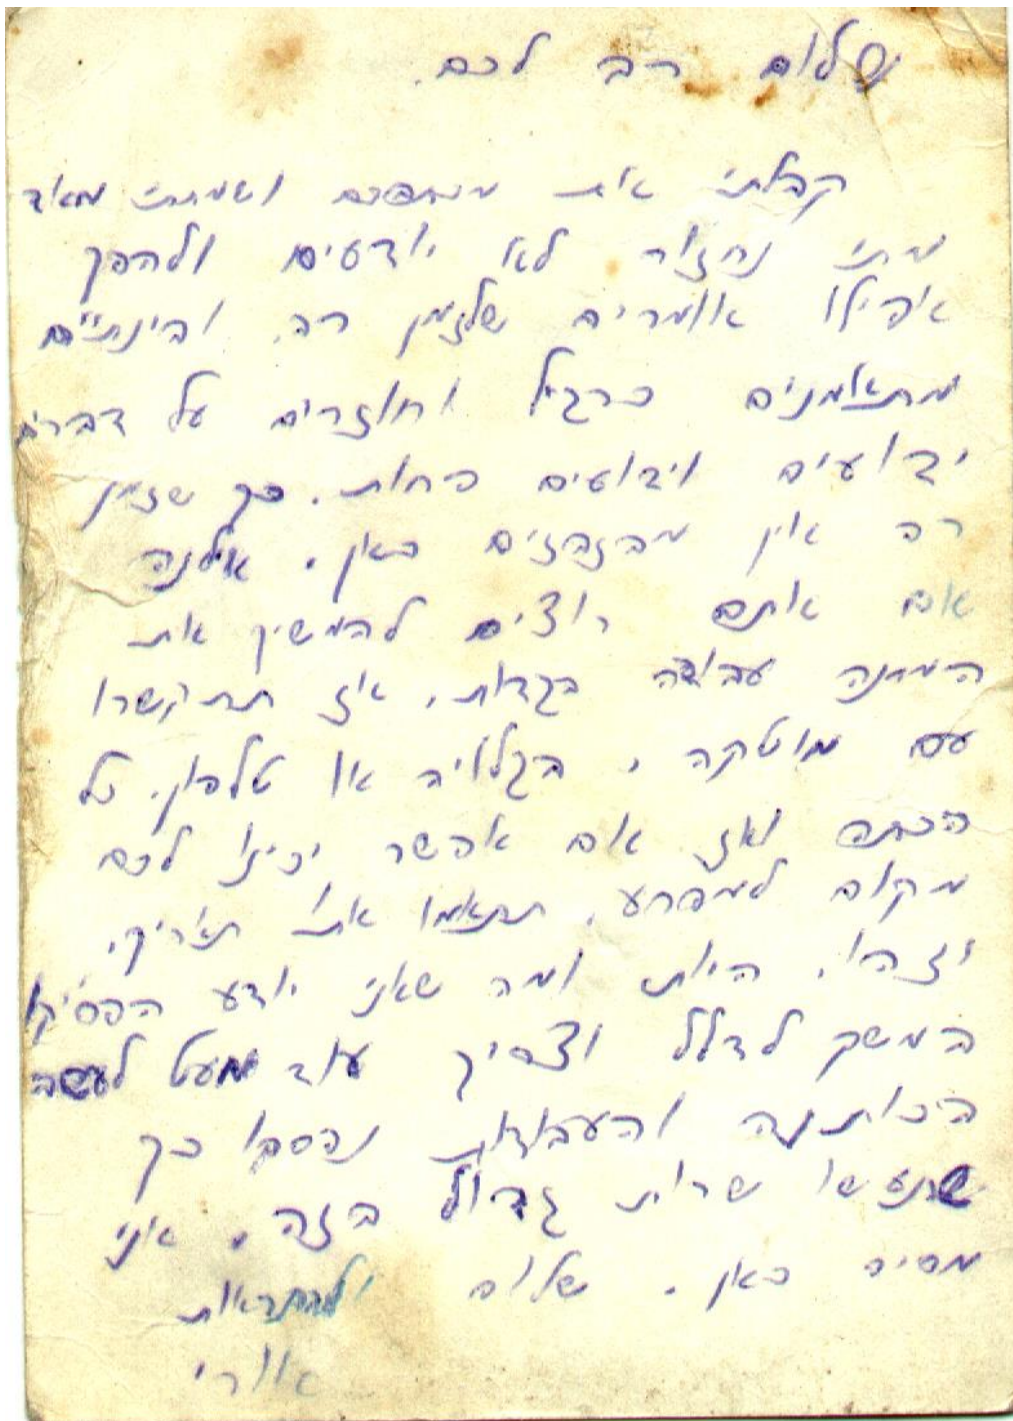 שלום רב לכם.
קבלתי את מכתבכם ושמחתי מאוד
מתי נחזור לא יודעים ולהפך
אפילו אומרים שלזמן רב. ובינתיים
מתאמנים כרגיל וחוזרים על דברים
ידועים וידועים פחות. כך שזמן
רב אין מבזבזים כאן. אילנה
אם אתם רוצים להמשיך את
המחנה עבודה בגדות, אז תתקשרו
עם מוטקה, בגלויה או טלפון. כל
הכתה ואז אם אפשר יכינו לכם
מקום למפרע. תתאמו אתו תאריך,
וזהו. היות ומה שאני יודע הפסיקו
המשק לדלל וצריך עוד מעט לעשה
היכותנה והעבודות נפסבו כך
שתעשו שרות גדול בזה. אני
מסיים כאן. שלום ולהתראות
אורי